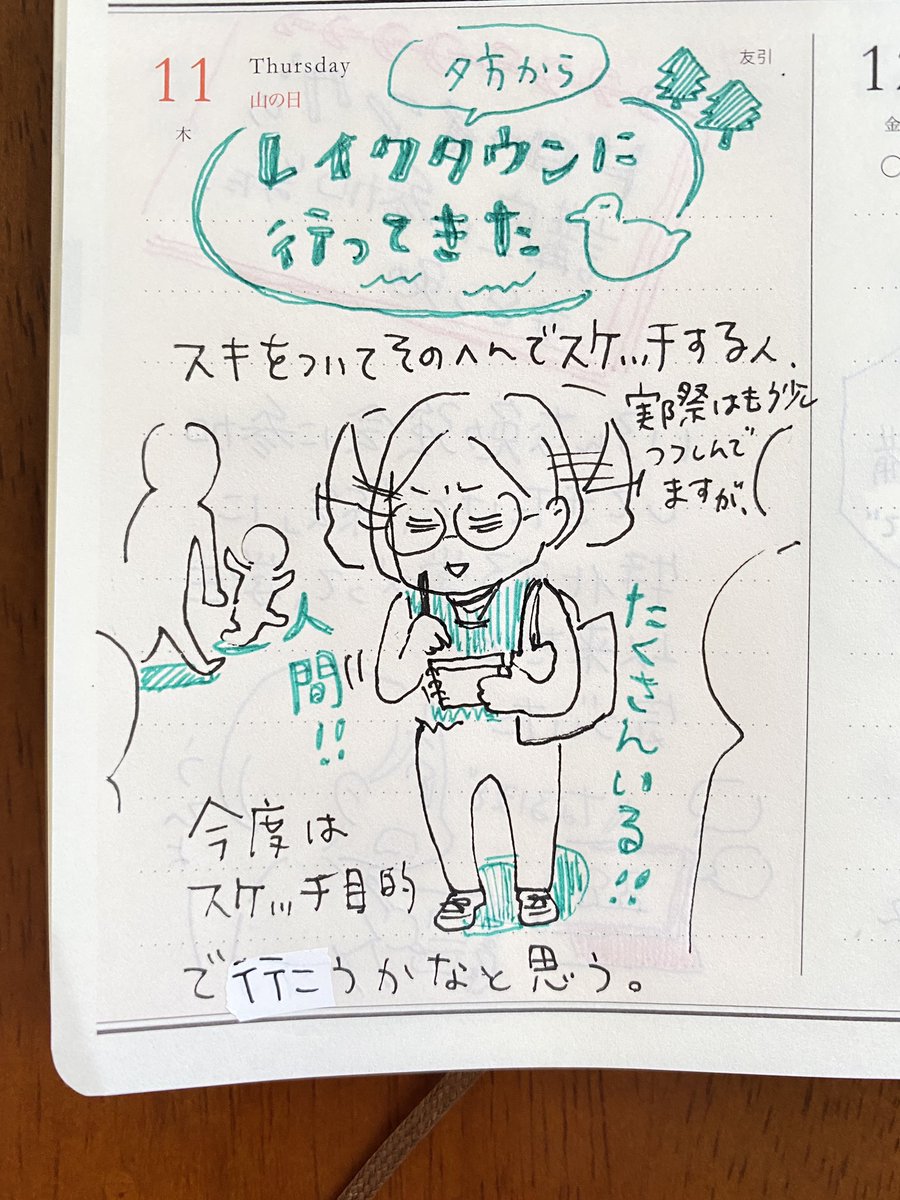 11
Thursday
山の日
木
友引
夕方から
レイクタウンに
行ってきた
スキをついてそのへんでスケッチする人、
実際はもう少し
つつしんで
ますが、
人間!!
たくさんいる!!
今度は
スケッチ目的
で行こうかなと思う。
金